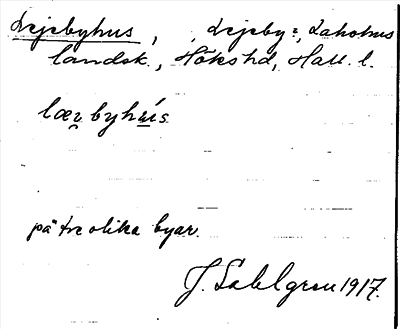 Lejebyhus, , Lejeby=, Laholms
landsk., Hökshd, Hall. l.
læ̯r byhu̲ís
på tre olika byar.
J. Sahlgren 1917.